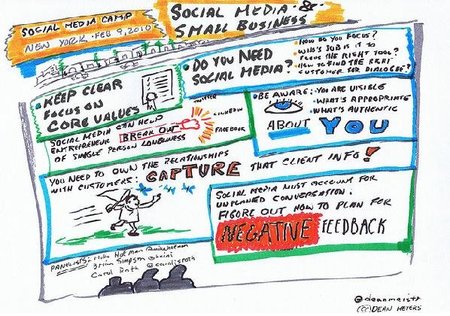 SOCIAL MEDIA CAMP
NEW YORK - FEB 9, 2010
SOCIAL MEDIA &
SMALL BUSINESS
• KEEP CLEAR
FOCUS ON
CORE VALUES
• DO YOU NEED
SOCIAL MEDIA?
• HOW DO YOU FOCUS?
• WHO'S JOB IS IT TO
CHOOSE THE RIGHT TOOL?
• HOW TO FIND THE RIGHT
CUSTOMER FOR DIALOGUE?
TWITTER
LINKEDIN
FACEBOOK
SOCIAL MEDIA CAN HELP
ENTREPRENEUR BREAK OUT
OF SINGLE PERSON LONELINESS
• BE AWARE:
• YOU ARE VISIBLE
• WHAT'S APPROPRIATE
• WHAT'S AUTHENTIC
ABOUT YOU
YOU NEED TO OWN THE RELATIONSHIPS
WITH CUSTOMERS: CAPTURE THAT CLIENT INFO!
SOCIAL MEDIA MUST ACCOUNT FOR
UNPLANNED CONVERSATION:
FIGURE OUT HOW TO PLAN FOR
NEGATIVE FEEDBACK
PANELISTS:
Brian Simpson
Carol Roth @carolroth
@deanmeistr
(cc) DEAN MEYERS